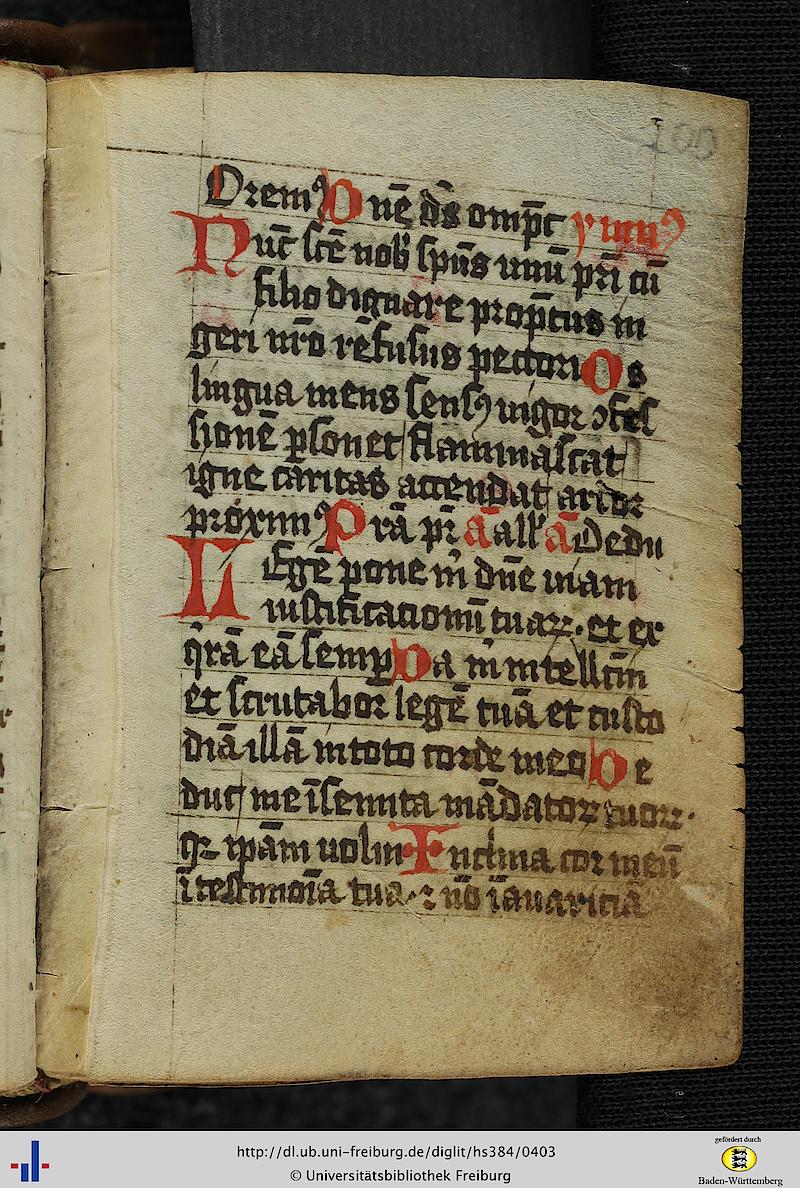 100
Orem⁹ Dne᷒ ds̄ omp̄c ymn⁹
Nuc̄ scē nob̾ sp̄us unū pr̄i cū
filio dignare promp̄tus in
geri nr̄o rēfusus pectori Os
lingua mens sens⁹ vigor ꝯfes
sionē ꝑsonet flammascat
igne caritas accendat ardor
proxim⁹ Prā pr̄ ā all'a ā Dedu
Legē pone m̄ dn̄e uiam
iustificationū tuaꝝ. et ex
q̄rā eā semp̄ Da m̄ intellc̄m
et scrutabor legē tuā et custo
diā illā in toto corde meo De
duc me ī semita mādatoꝝ tuoꝝ.
qꝛ ip̄am uolui Inclina cor meū
ī testimōia tua. ⁊ nō ī auariciā
http://dl.ub.uni-freiburg.de/diglit/hs384/0403
© Universitätsbibliothek Freiburg
gefördert durch
Baden-Württemberg